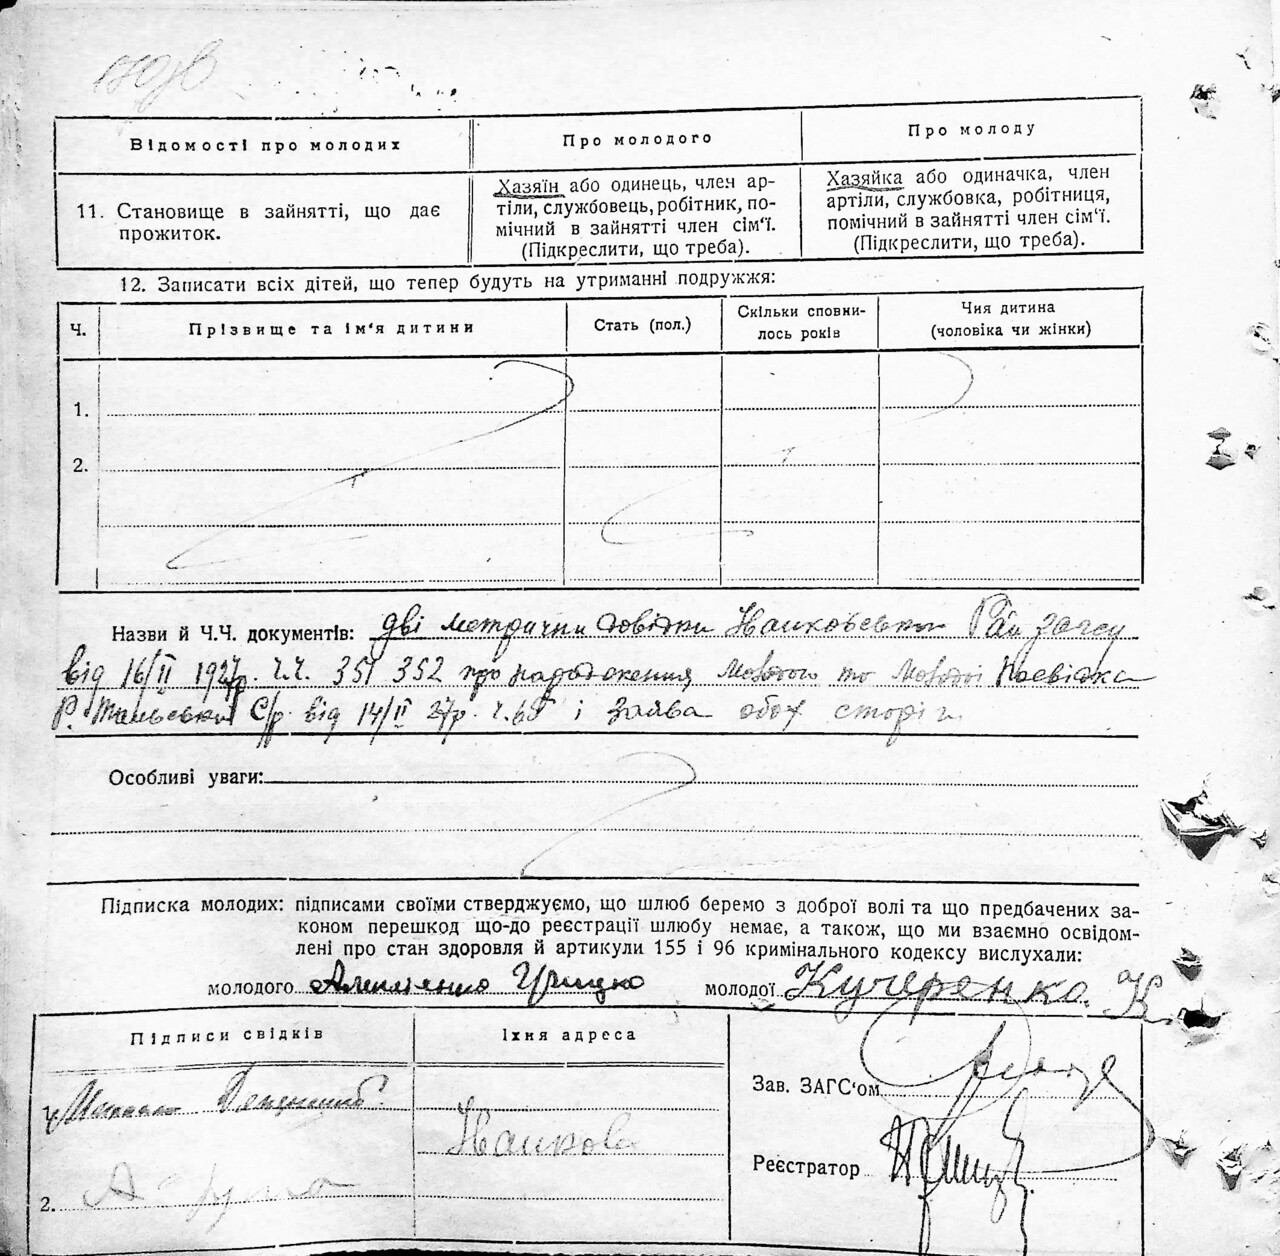 Відомості про молодих
Про молодого
Про молоду
11. Становище в зайнятті, що дає
прожиток.
Хазяїн або одинець, член ар-
тіли, службовець, робітник, по-
мічний в зайнятті член сім'ї.
(Підкреслити, що треба).
Хазяйка або одиначка, член
артіли, службовка, робітниця,
помічний в зайнятті член сім'ї.
(Підкреслити, що треба).
12. Записати всіх дітей, що тепер будуть на утриманні подружжя:
Ч.
Прізвище та ім'я дитини
Стать (пол.)
Скільки сповни-
лось років
Чия дитина
(чоловіка чи жінки)
1.
2.
Назви й Ч.Ч. документів: дві метрични довідки Рай загсу
від 16/II 1927р. ч.ч. 351 352 про народження молодого та молодої Посвідка
С/р від 14/II 27р. і заява обох сторін
Особливі уваги:
Підписка молодих: підписами своїми стверджуємо, що шлюб беремо з доброї волі та що предбачених за-
коном перешкод що-до реєстрації шлюбу немає, а також, що ми взаємно освідом-
лені про стан здоровля й артикули 155 і 96 кримінального кодексу вислухали:
молодого Грицко молодої Кучеренко К.
Підписи свідків
Їхня адреса
1.
2.
Зав. ЗАГС'ом
Реєстратор